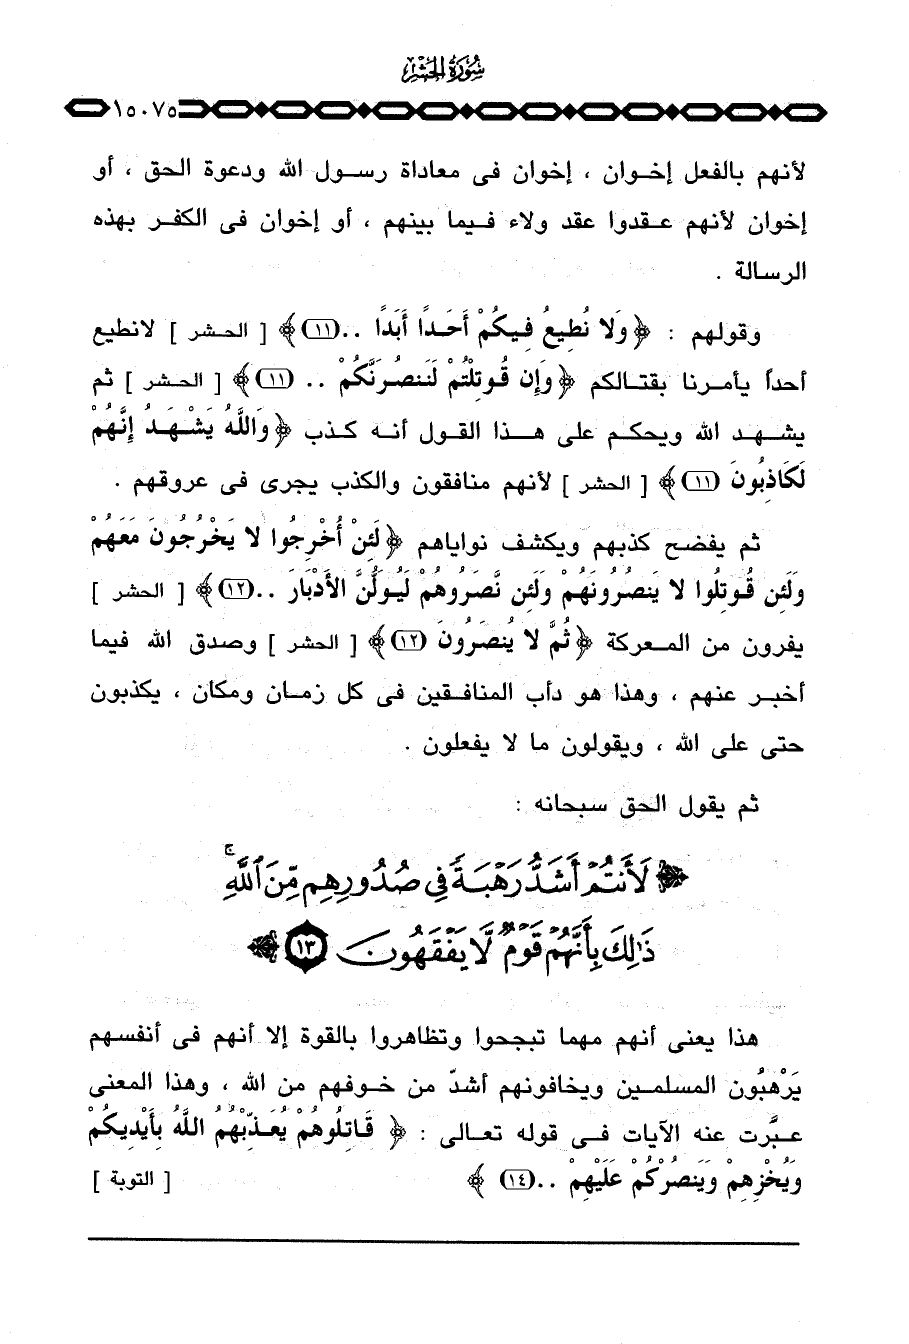 سُورَةُ الْحَشْرِ
١٥٠٧٥
لأنهم بالفعل إخوان ، إخوان فى معاداة رسول الله ودعوة الحق ، أو
إخوان لأنهم عقدوا عقد ولاء فيما بينهم ، أو إخوان فى الكفر بهذه
الرسالة .
وقولهم : ﴿ وَلا نُطِيعُ فِيكُمْ أَحَدًا أَبَدًا ..(١١)﴾ [ الحشر ] لانطيع
أحداً يأمرنا بقتالكم ﴿ وَإِن قُوتِلْتُمْ لَنَنصُرَنَّكُمْ .. (١١)﴾ [ الحشر ] ثم
يشهد الله ويحكم على هذا القول أنه كذب ﴿ وَاللَّهُ يَشْهَدُ إِنَّهُمْ
لَكَاذِبُونَ (١١)﴾ [ الحشر ] لأنهم منافقون والكذب يجرى فى عروقهم .
ثم يفضح كذبهم ويكشف نواياهم ﴿ لَئِنْ أُخْرِجُوا لا يَخْرُجُونَ مَعَهُمْ
وَلَئِن قُوتِلُوا لا يَنصُرُونَهُمْ وَلَئِن نَّصَرُوهُمْ لَيُوَلُّنَّ الأَدْبَارَ ..(١٢)﴾ [ الحشر ]
يفرون من المعركة ﴿ ثُمَّ لا يُنصَرُونَ (١٢)﴾ [ الحشر ] وصدق الله فيما
أخبر عنهم ، وهذا هو دأب المنافقين فى كل زمان ومكان ، يكذبون
حتى على الله ، ويقولون ما لا يفعلون .
ثم يقول الحق سبحانه :
﴿ لَأَنتُمْ أَشَدُّ رَهْبَةً فِي صُدُورِهِم مِّنَ ٱللَّهِ ۚ
ذَٰلِكَ بِأَنَّهُمْ قَوْمٌ لَّا يَفْقَهُونَ ١٣ ﴾
هذا يعنى أنهم مهما تبجحوا وتظاهروا بالقوة إلا أنهم فى أنفسهم
يَرْهبُون المسلمين ويخافونهم أشدّ من خوفهم من الله ، وهذا المعنى
عبَّرت عنه الآيات فى قوله تعالى : ﴿ قَاتِلُوهُمْ يُعَذِّبْهُمُ اللَّهُ بِأَيْدِيكُمْ
وَيُخْزِهِمْ وَيَنصُرْكُمْ عَلَيْهِمْ ..(١٤) ﴾ [ التوبة ]